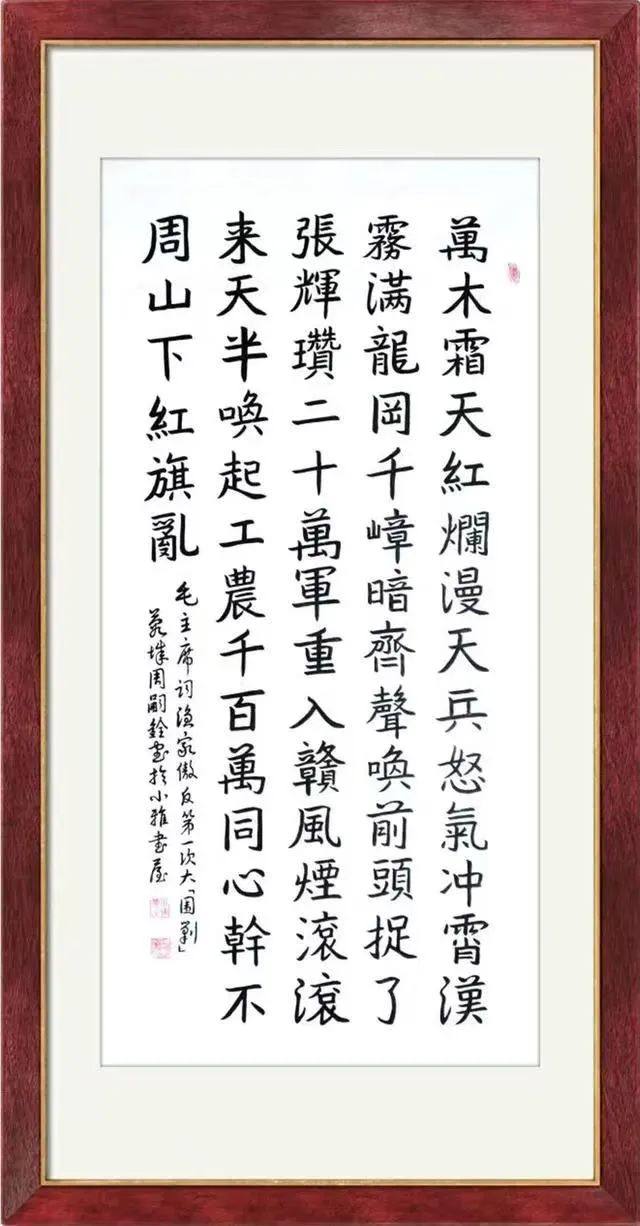 萬木霜天紅爛漫天兵怒氣沖霄漢
霧满龍岡千嶂暗齊聲唤前頭捉了
張輝瓚二十萬軍重入贛風煙滾滾
来天半唤起工農千百萬同心幹不
周山下紅旗亂
毛主席词渔家傲反第一次大「围剿」
周嗣銓書於小雅書屋